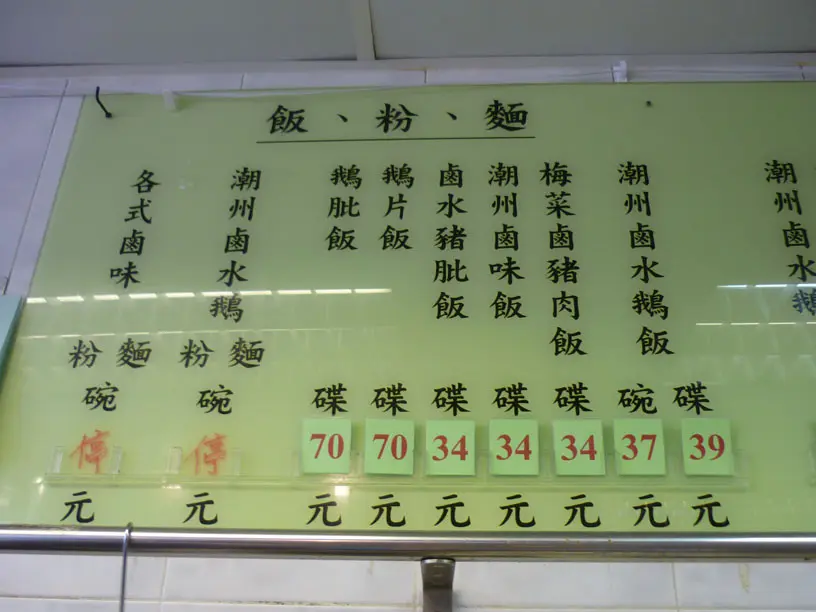 飯、粉、麵
潮州鹵
潮州鹵水鵝飯
碗 37 元
碟 39 元
梅菜鹵豬肉飯
碟 34 元
潮州鹵味飯
碟 34 元
鹵水豬肶飯
碟 34 元
鵝片飯
碟 70 元
鵝肶飯
碟 70 元
潮州鹵水鵝
粉麵
碗 停 元
各式鹵味
粉麵
碗 停 元